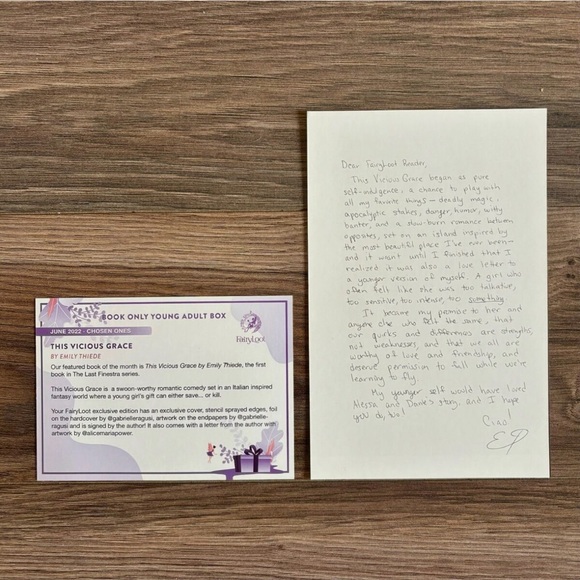 BOOK ONLY YOUNG ADULT BOX
JUNE 2022 - CHOSEN ONES
FairyLoot
THIS VICIOUS GRACE
BY EMILY THIEDE
Our featured book of the month is This Vicious Grace by Emily Thiede, the first
book in The Last Finestra series.
This Vicious Grace is a swoon-worthy romantic comedy set in an Italian inspired
fantasy world where a young girl's gift can either save... or kill.
Your FairyLoot exclusive edition has an exclusive cover, stencil sprayed edges, foil
on the hardcover by @gabrielleragusi, artwork on the endpapers by @gabrielle-
ragusi and is signed by the author! It also comes with a letter from the author with
artwork by @alicemariapower.
Dear FairyLoot Reader,
This Vicious Grace began as pure
self-indulgence, a chance to play with
all my favorite things — deadly magic,
apocalyptic stakes, danger, humor, witty
banter, and a slow-burn romance between
opposites, set on an island inspired by
the most beautiful place I've ever been—
and it wasn't until I finished that I
realized it was also a love letter to
a younger version of myself. A girl who
often felt like she was too talkative,
too sensitive, too intense, too something.
It became my promise to her and
anyone else who felt the same, that
our quirks and differences are strengths,
not weaknesses, and that we all are
worthy of love and friendship, and
deserve permission to fall while we're
learning to fly.
My younger self would have loved
Alessa and Dante's story, and I hope
you do, too!
Ciao!